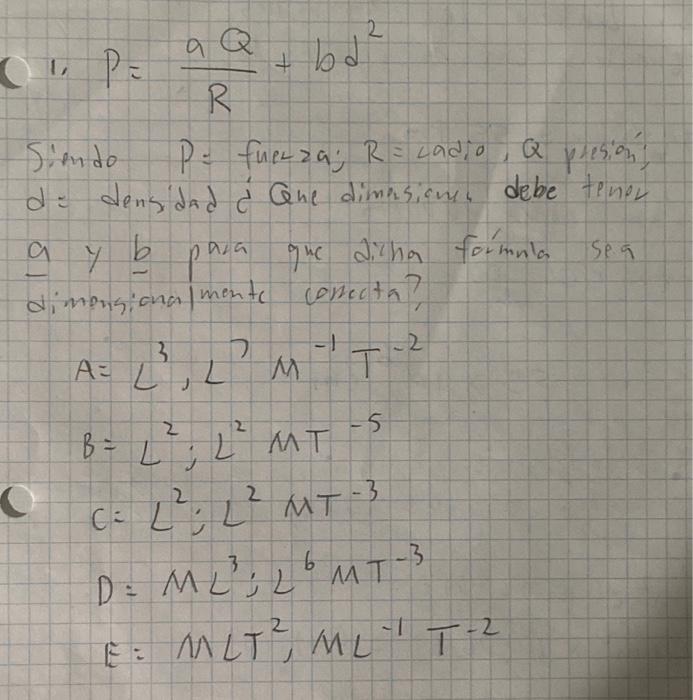 1. P = aQ/R + bd²
Siendo P = fuerza; R = radio, Q presión;
d = densidad ¿ Que dimensiones debe tener
a y b para que dicha fórmula sea
dimensionalmente correcta?
A = L³, L⁷ M⁻¹ T⁻²
B = L²; L² MT⁻⁵
C = L²; L² MT⁻³
D = ML³; L⁶ MT⁻³
E = MLT², ML⁻¹ T⁻²